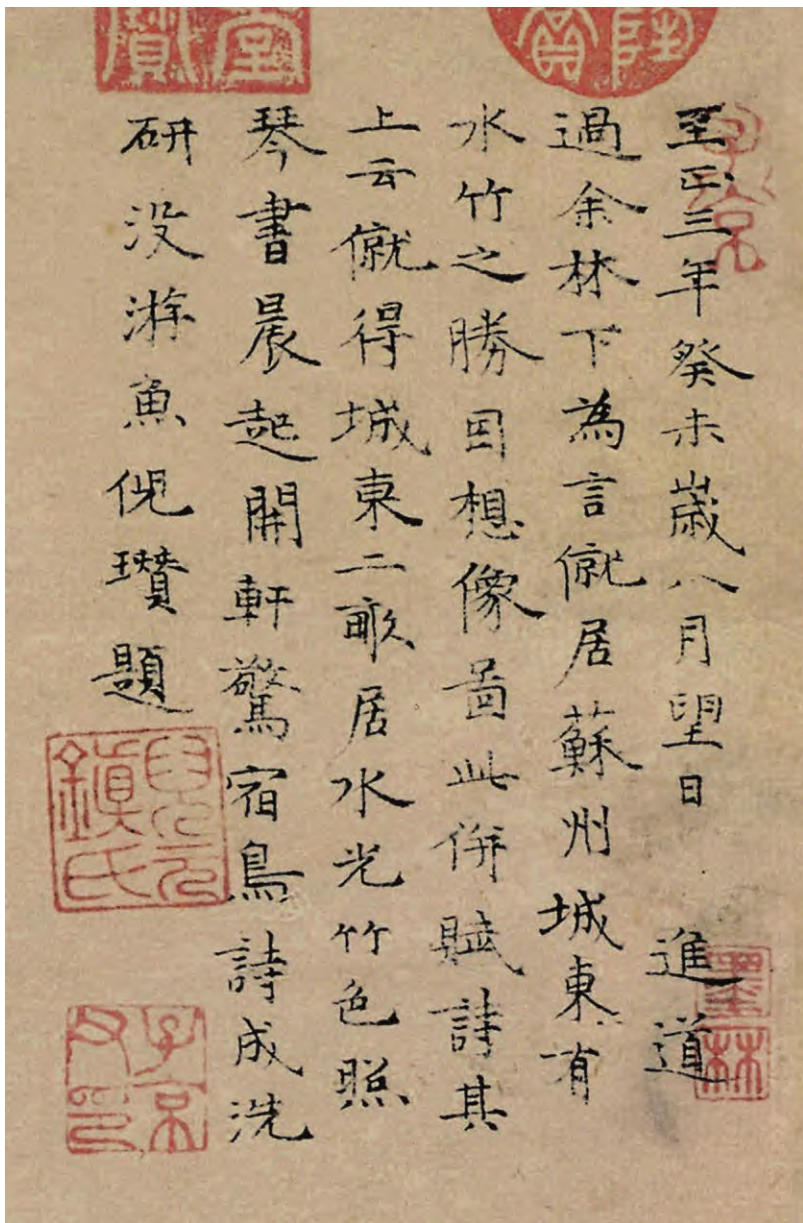 至正三年癸未歲八月望日 進道
過余林下為言僦居蘇州城東有
水竹之勝因想像啚此併賦詩其
上云僦得城東二畝居水光竹色照
琴書晨起開軒驚宿鳥詩成洗
研没游魚倪瓚題
子京
墨林
子京父印